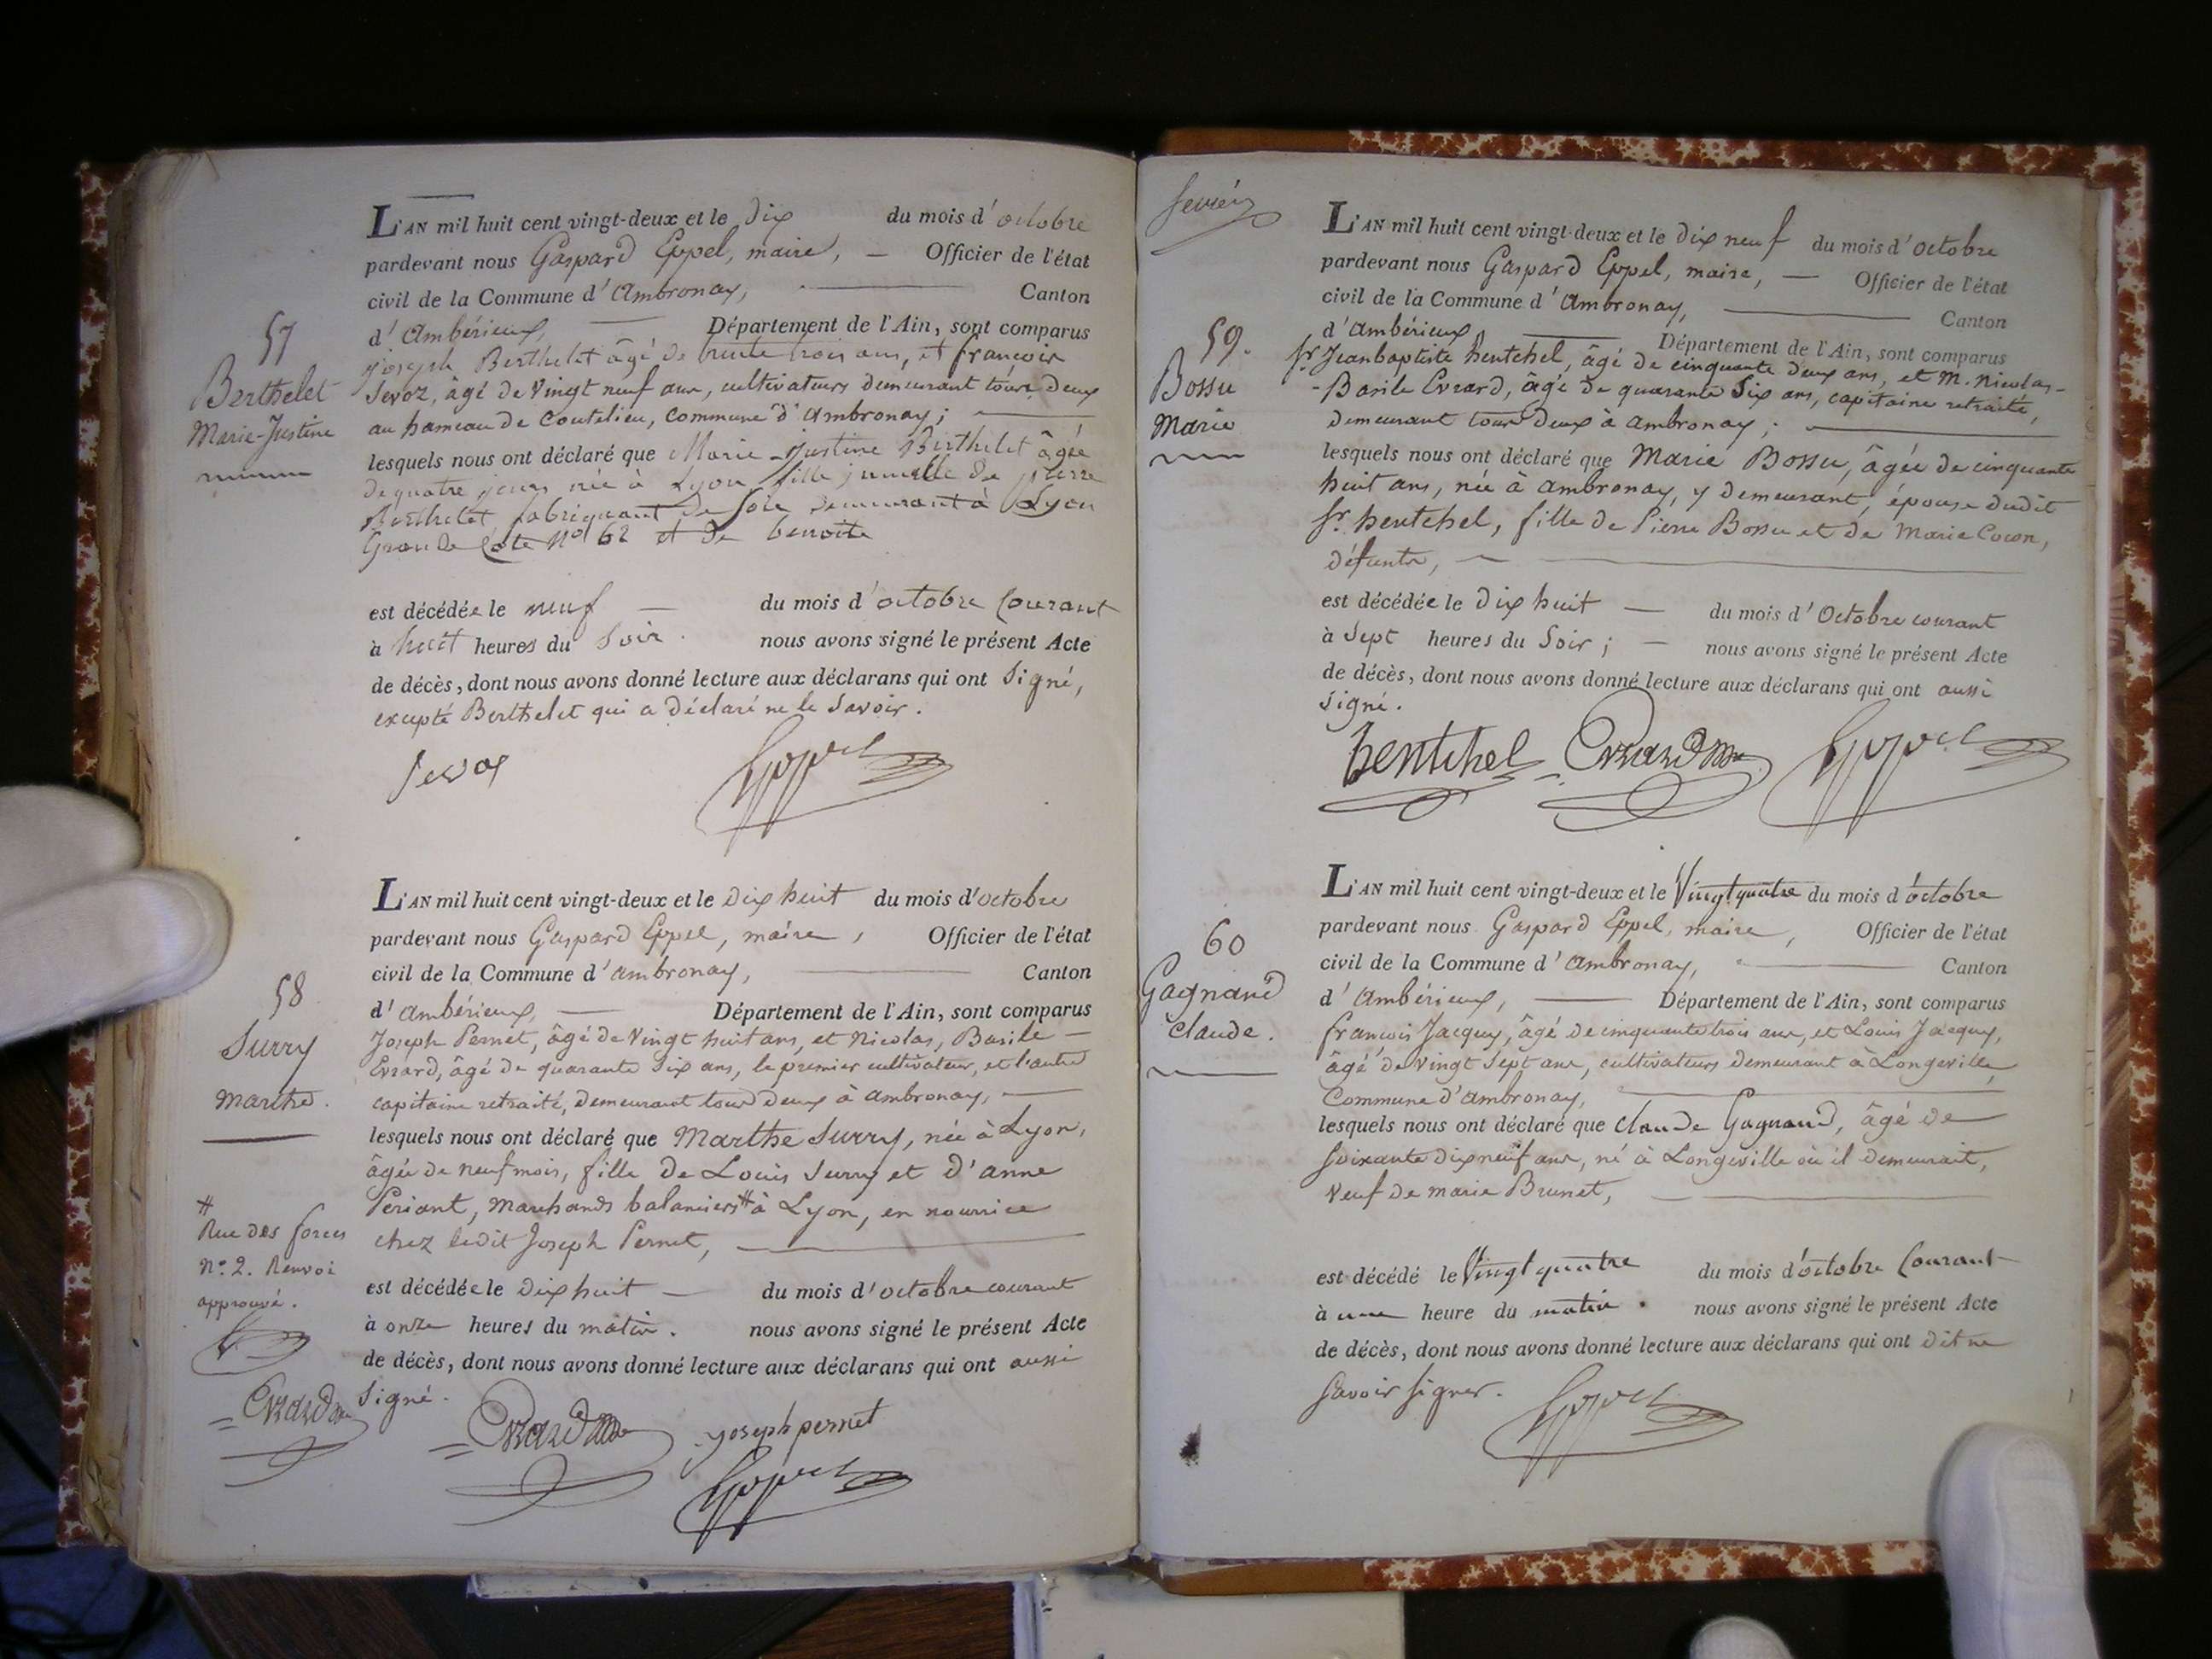 57
Berthelet
Marie-Justine
L'AN mil huit cent vingt-deux et le dix du mois d'octobre
pardevant nous Gaspard Eppel, maire, — Officier de l'état
civil de la Commune d'Ambronay, Canton
d'Ambérieux, Département de l'Ain, sont comparus
joseph Berthelet âgé de trente trois ans, et françois
Sevoz, âgé de vingt neuf ans, cultivateurs demeurant tous deux
au hameau de Coutelieu, commune d'Ambronay;
lesquels nous ont déclaré que Marie-Justine Berthelet âgée
de quatre jours née à Lyon fille jumelle de pierre
Berthelet fabriquant de soie demeurant à Lyon
Grande Cote No 62 et de benoite
est décédée le neuf — du mois d'octobre Courant
à huit heures du Soir. nous avons signé le présent Acte
de décès, dont nous avons donné lecture aux déclarans qui ont signé,
excepté Berthelet qui a déclaré ne le savoir.
Sevoz Eppel
58
Surry
marthe.
L'AN mil huit cent vingt-deux et le dix huit du mois d'octobre
pardevant nous Gaspard Eppel, maire, Officier de l'état
civil de la Commune d'ambronay, Canton
d'Ambérieux, — Département de l'Ain, sont comparus
Joseph Pernet, âgé de vingt huit ans, et Nicolas, Basile —
Evrard, âgé de quarante six ans, le premier cultivateur, et l'autre
capitaine retraité, demeurant tous deux à ambronay, —
lesquels nous ont déclaré que Marthe Surry, née à Lyon,
âgée de neuf mois, fille de Louis Surry et d'anne
Périant, marchands balanciers # à Lyon, en nourrice
chez ledit Joseph Pernet,
est décédée le dix huit — du mois d'octobre courant
à onze heures du matin. nous avons signé le présent Acte
de décès, dont nous avons donné lecture aux déclarans qui ont aussi
signé.
#
Rue des forces
n°. 2. Renvoi
approuvé.
Evrard
Evrard joseph pernet
Eppel
59.
Bossu
Marie
L'AN mil huit cent vingt-deux et le dix neuf du mois d'octobre
pardevant nous Gaspard Eppel, maire, — Officier de l'état
civil de la Commune d'Ambronay, Canton
d'Ambérieux, Département de l'Ain, sont comparus
Sr. Jean baptiste hentchel, âgé de cinquante deux ans, et M. Nicolas-
-Basile Evrard, âgé de quarante six ans, capitaine retraité,
demeurant tous deux à ambronay;
lesquels nous ont déclaré que Marie Bossu, âgée de cinquante
huit ans, née à ambronay, y demeurant, épouse dudit
Sr. hentchel, fille de Pierre Bossu et de Marie Cocon,
défunts,
est décédée le dix huit — du mois d'Octobre courant
à sept heures du Soir; — nous avons signé le présent Acte
de décès, dont nous avons donné lecture aux déclarans qui ont aussi
signé.
hentchel Evrard Eppel
60
Gagnand
claude.
L'AN mil huit cent vingt-deux et le Vingt quatre du mois d'octobre
pardevant nous Gaspard Eppel, maire, Officier de l'état
civil de la Commune d'Ambronay, Canton
d'Ambérieux, Département de l'Ain, sont comparus
françois Jacquy, âgé de cinquante trois ans, et Louis Jacquy,
âgé de vingt sept ans, cultivateurs demeurant à Longeville
Commune d'ambronay,
lesquels nous ont déclaré que Claude Gagnand, âgé de
soixante dix neuf ans, né à Longeville où il demeurait,
veuf de marie Brunet,
est décédé le Vingt quatre du mois d'octobre Courant
à une heure du matin. nous avons signé le présent Acte
de décès, dont nous avons donné lecture aux déclarans qui ont dit ne
savoir signer. Eppel